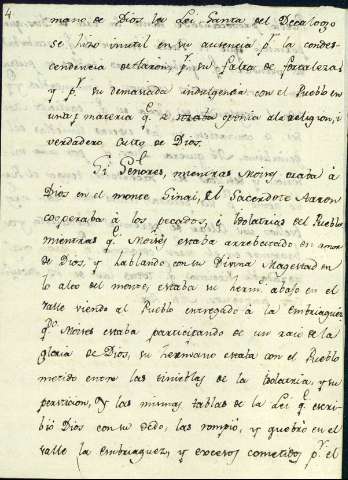 4
mano de Dios la Lei Santa del Decalogo
se hizo inutil en su ausencia pr. la condes-
cendencia de Aaron, pr. su falta de fortaleza,
y pr. su demasiada indulgencia con el Pueblo en
una materia qe.
verdadero culto de Dios.
Si Señores, mientras Moises estaba à
Dios en el monte Sinai, el Sacerdote Aaron
cooperaba à los pecados, è Idolatrias del Pueblo
mientras qe. Moises estaba arrebatado en amor
de Dios, y hablando con su Divina Magestad en
lo alto del monte, estaba su hermo. abajo en el
Valle viendo al Pueblo entregado à la embriaguez
qdo. Moises estaba participando de un raio de la
gloria de Dios, su hermano estaba con el Pueblo
metido entre las tinieblas de la Idolatria, y su
perdicion, y las mismas tablas de la Lei qe. escri-
biò Dios con su dedo, las rompiò, y quebrò en el
valle la embriaguez, y excesos cometidos pr. el